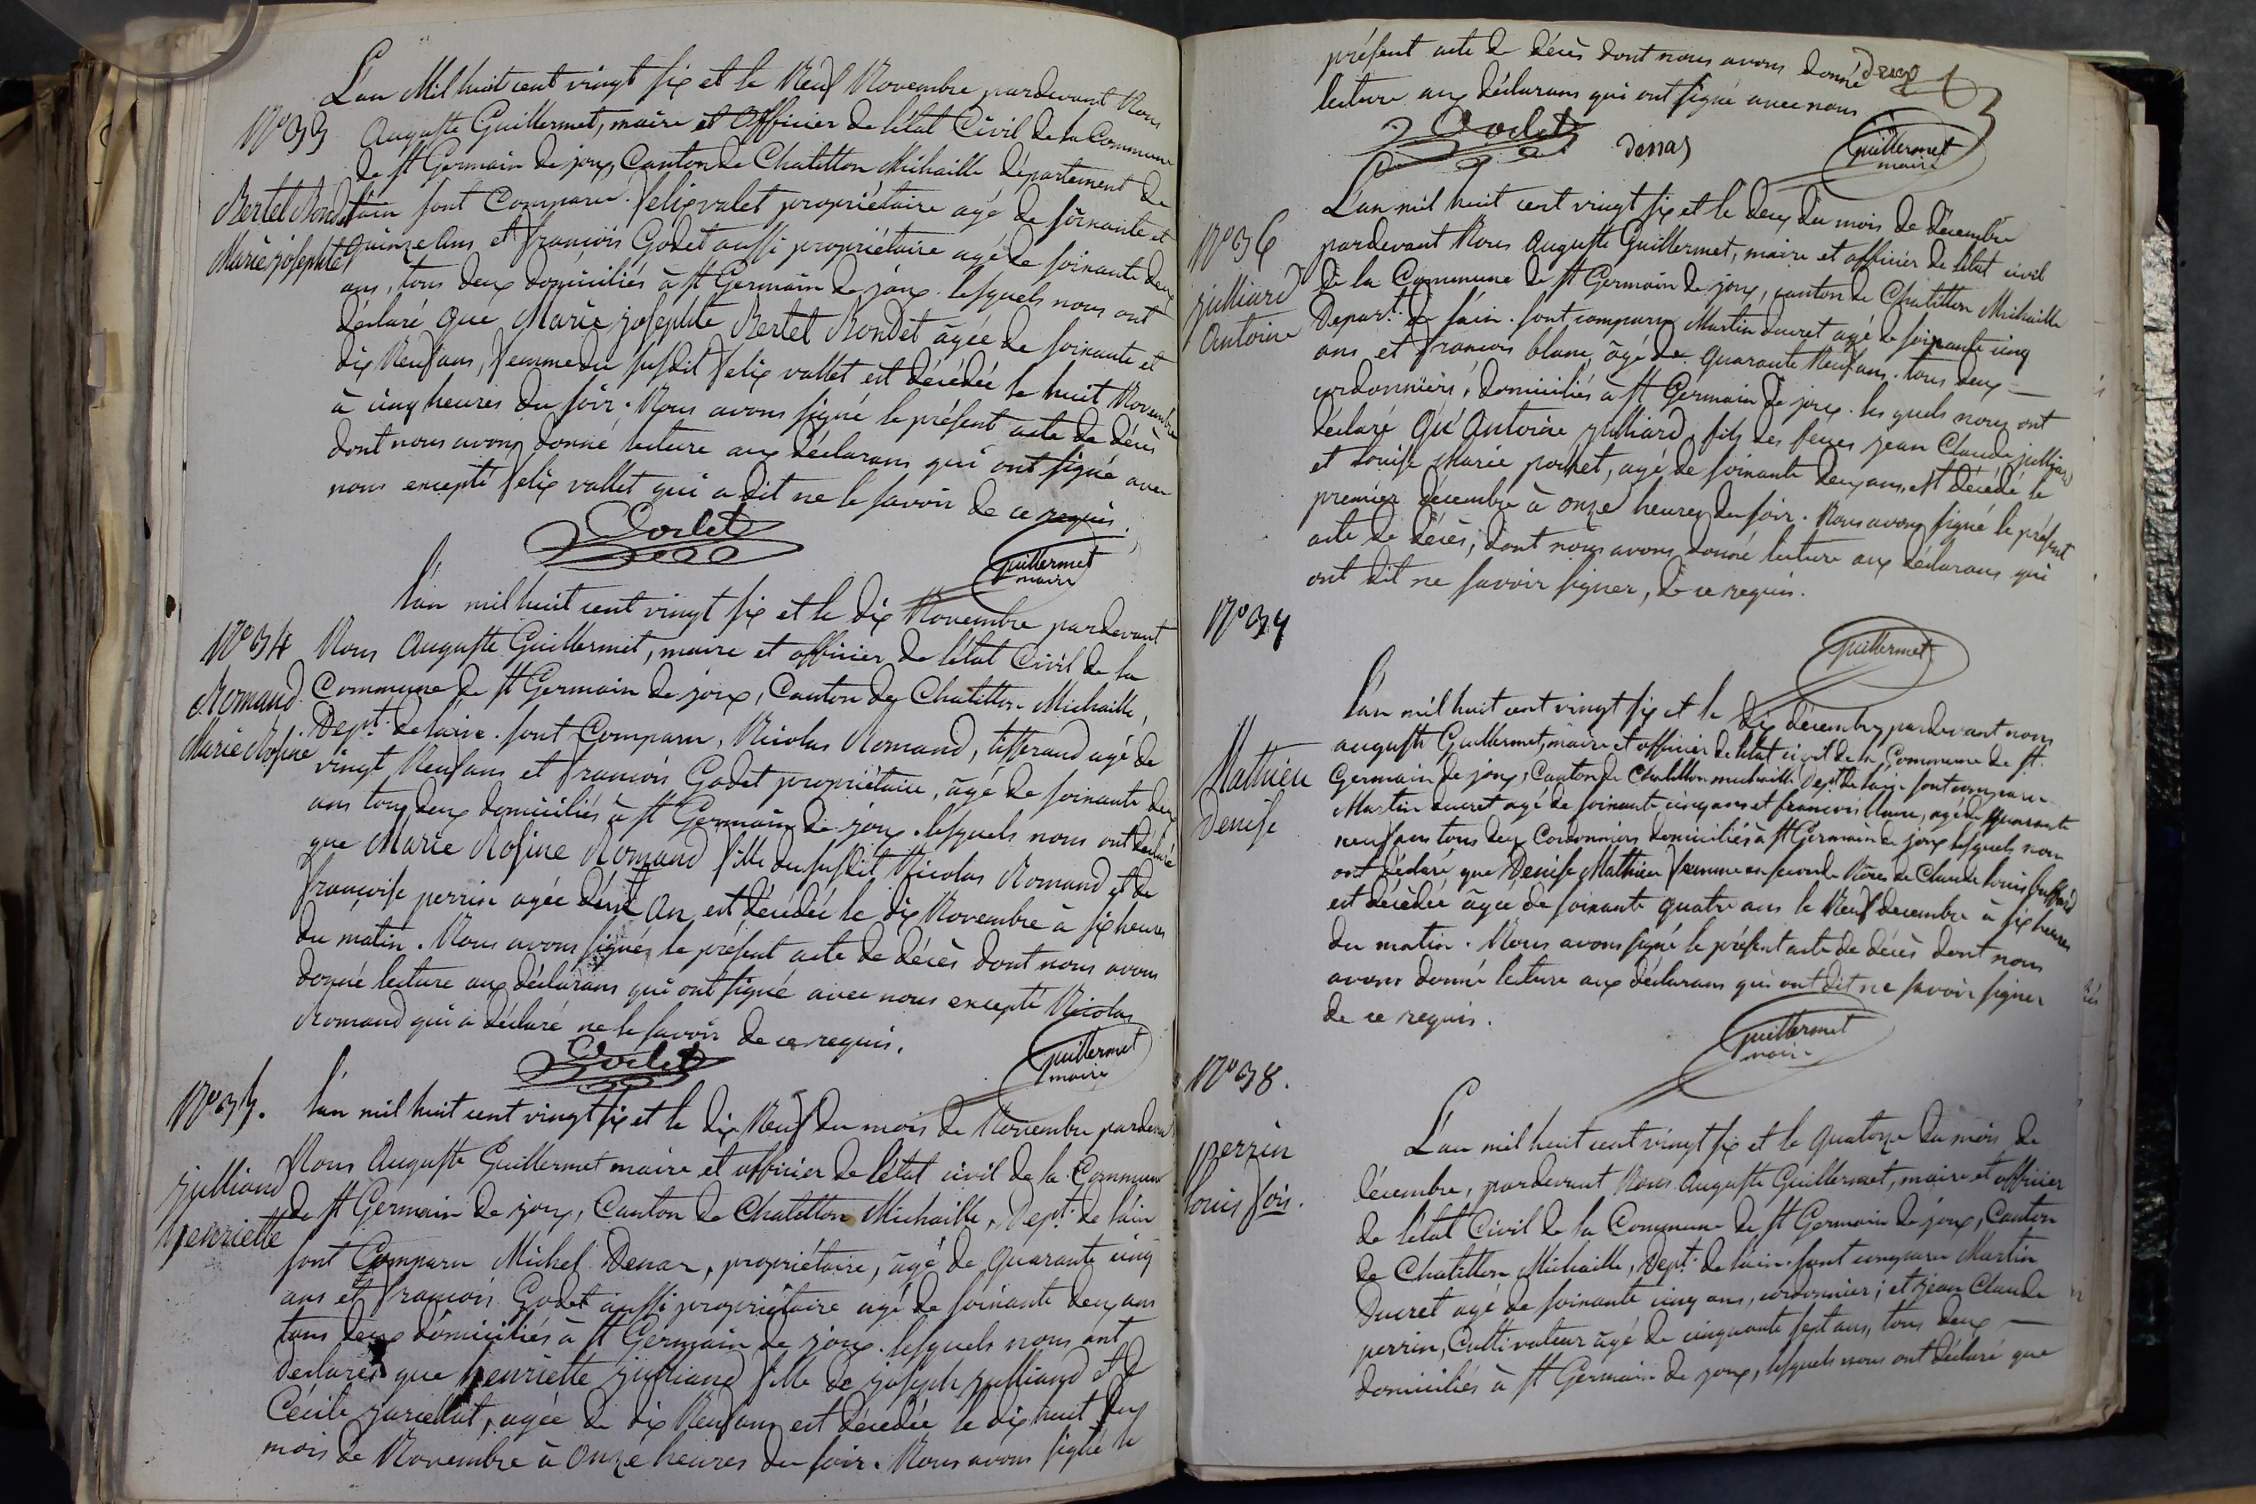 L'an Mil huit cent vingt six et le Neuf Novembre pardevant Nous
N° 33
Auguste Guillermet, maire et Officier de l'état Civil de la Commune
de St Germain de joux, Canton de Chatillon Michaille département de
l'ain sont Comparu. felix valet propriétaire agé de soixante et
Bertet Bondet
Marie josephte
quinze ans et françois Godet aussi propriétaire agé de soixante deux
ans, tous deux domiciliés à St Germain de joux. lesquels nous ont
déclaré que Marie josephte Bertet Bondet âgée de soixante et
dix Neuf ans, femme du susdit felix vallet est décédée le huit Novembre
à cinq heures du soir. Nous avons signé le présent acte de décès
dont nous avons donné lecture aux déclarans qui ont signé avec
nous excepté felix vallet qui a dit ne le savoir de ce requis.
Godet
Guillermet
maire
L'an mil huit cent vingt six et le dix Novembre pardevant
N° 34
Nous Auguste Guillermet, maire et officier de l'état Civil de la
Romand
Marie Rosine
Commune de St Germain de joux, Canton de Chatillon Michaille,
Dept. de l'ain. sont Comparu, Nicolas Romand, tisserand agé de
vingt Neuf ans et françois Godet propriétaire, âgé de soixante deux
ans tous deux domiciliés à St Germain de joux. lesquels nous ont déclaré
que Marie Rosine Romand fille du susdit Nicolas Romand et de
françoise perrin agée d'un An est décédée le dix Novembre à six heures
du matin. Nous avons signés le présent acte de décès dont nous avons
donné lecture aux déclarans qui ont signé avec nous excepté Nicolas
Romand qui a déclaré ne le savoir de ce requis.
Godet
Guillermet
maire
N° 35.
L'an mil huit cent vingt six et le dix Neuf du mois de Novembre pardevant
julliand
henriette
Nous Auguste Guillermet maire et officier de l'état civil de la Commune
de St Germain de joux, Canton de Chatillon Michaille, Dept. de l'ain
sont Comparu Michel Denar, propriétaire, âgé de quarante cinq
ans et françois Godet aussi propriétaire agé de soixante deux ans
tous deux domiciliés à St Germain de joux. lesquels nous ont
déclarés que henriette julliand fille de joseph julliand et de
Cécile, agée de dix Neuf ans est décédée le dix huit du
mois de Novembre à Onze heures du soir. Nous avons signé le
présent acte de décès dont nous avons donné
lecture aux déclarans qui ont signé avec nous
Godet
denas
Guillermet
maire
L'an mil huit cent vingt six et le deux du mois de décembre
N° 36
julliard
Antoine
pardevant Nous Auguste Guillermet, maire et officier de l'état civil
de la Commune de St Germain de joux, canton de Chatillon Michaille
Depart. de l'ain. sont comparu Martin ducret agé de soixante cinq
ans et françois blanc, âgé de quarante Neuf ans. tous deux
cordonniers, domiciliés à St Germain de joux. les quels nous ont
déclaré Qu'Antoine julliard, fils des feues jean Claude julliard
et Louise Marie pochet, agé de soixante deux ans, est décédé le
premier décembre à onze heures du soir. Nous avons signé le présent
acte de décès, dont nous avons donné lecture aux déclarans qui
ont dit ne savoir signer, de ce requis.
Guillermet
N° 37
L'an mil huit cent vingt six et le dix décembre pardevant nous
Mathieu
Denise
auguste Guillermet, maire et officier de l'état civil de la Commune de St.
Germain de joux, Canton de Chatillon michaille, Dept. de l'ain sont comparu
Martin ducret agé de soixante cinq ans et françois blanc, agé de quarante
neuf ans tous deux Cordonniers domiciliés à St Germain de joux lesquels nous
ont déclaré que Denise Mathieu femme en seconde Nôces de Claude Louis
est décèdée âgée de soixante quatre ans le Neuf decembre à six heures
du matin. Nous avons signé le présent acte de décès dont nous
avons donné lecture aux déclarans qui ont dit ne savoir signer
de ce requis.
Guillermet
maire
N° 38.
perrin
Louis fois.
L'an mil huit cent vingt six et le Quatorze du mois de
décembre, pardevant Nous Auguste Guillermet, maire et officier
de l'état Civil de la Commune de St Germain de joux, Canton
de Chatillon Michaille, Dept. de l'ain. sont comparu Martin
Ducret agé de soixante cinq ans, cordonnier; et jean Claude
perrin, Cultivateur âgé de cinquante sept ans, tous deux
domiciliés à St Germain de joux, lesquels nous ont déclaré que